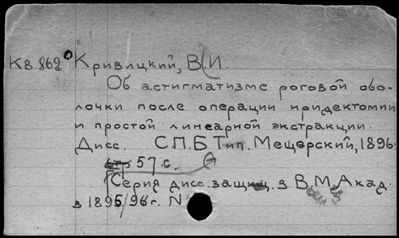 Кв 862 Кривицкий, В.И.
Об астигматизме роговой обо-
лочки после операции иридектомии
и простой линеарной экстракции.
Дисс. СПБ Тип. Мещерский, 1896
57 с.
(Серия дисс. защищ. в В.М. Акад.
в 1895/96 г. N